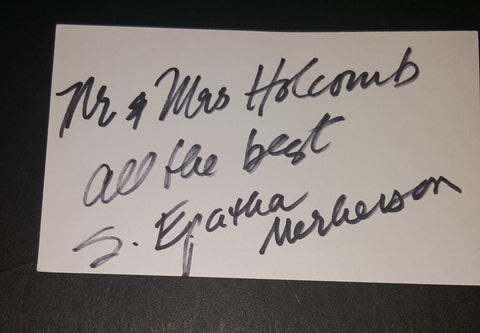 Mr & Mrs Holcomb
all the best
S. Epatha
Merkerson